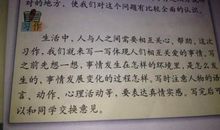 对的地方，使我们对这个问题有比较全面的认识。
习作
生活中，人与人之间需要相互关心、帮助，这次
习作，我们就来写一写体现人们相互关爱的事情。写
之前先想一想，事情发生在怎样的环境里，是怎么发
生的，事情发展变化的过程怎样，写时注意人物的语
言、动作、心理活动等，要表达真情实感，写完后可
以和同学交换意见。